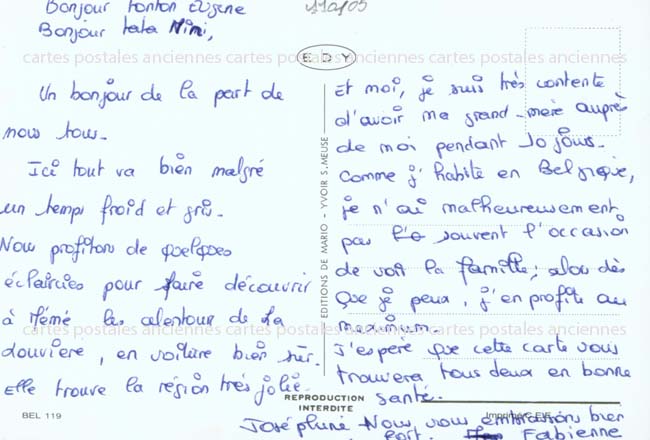 Bonjour tonton Eugène
Bonjour tata Nini,
Un bonjour de la part de
nous tous.
Ici tout va bien malgré
un temps froid et gris.
Nous profitons de quelques
éclaircies pour faire découvrir
à Mémé les alentour de La
Louvière, en voiture bien sûr.
Elle trouve la région très jolie.
BEL 119
EDY
EDITIONS DE MARIO - YVOIR S. MEUSE
REPRODUCTION
INTERDITE
Et moi, je suis très contente
d'avoir ma grand-mère auprès
de moi pendant 10 jours.
Comme j'habite en Belgique,
je n'ai malheureusement
pas souvent l'occasion
de voir la famille; alors dès
que je peux, j'en profite au
maximum.
J'espère que cette carte vous
trouvera tous deux en bonne
santé.
Imprimerie
Nous vous embrassons bien
fort. Fabienne
cartes postales anciennes cartes postales anciennes cartes postales anciennes
cartes postales anciennes cartes postales anciennes cartes postales anciennes